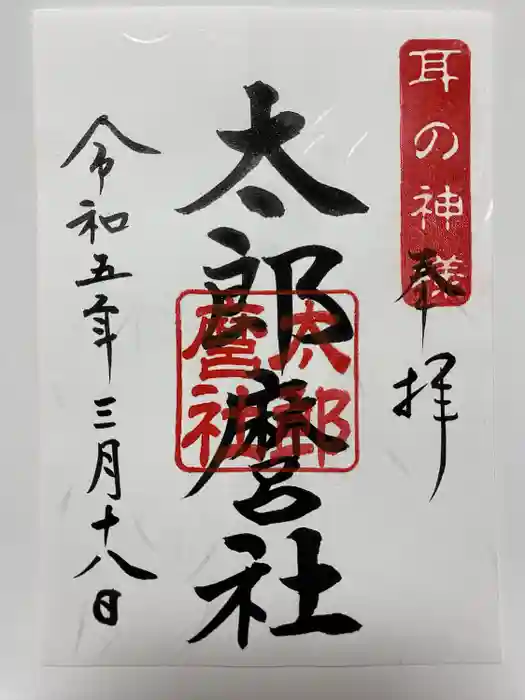 耳の神様
奉拝
太郎麿社
太郎
麿社
令和五年三月十八日